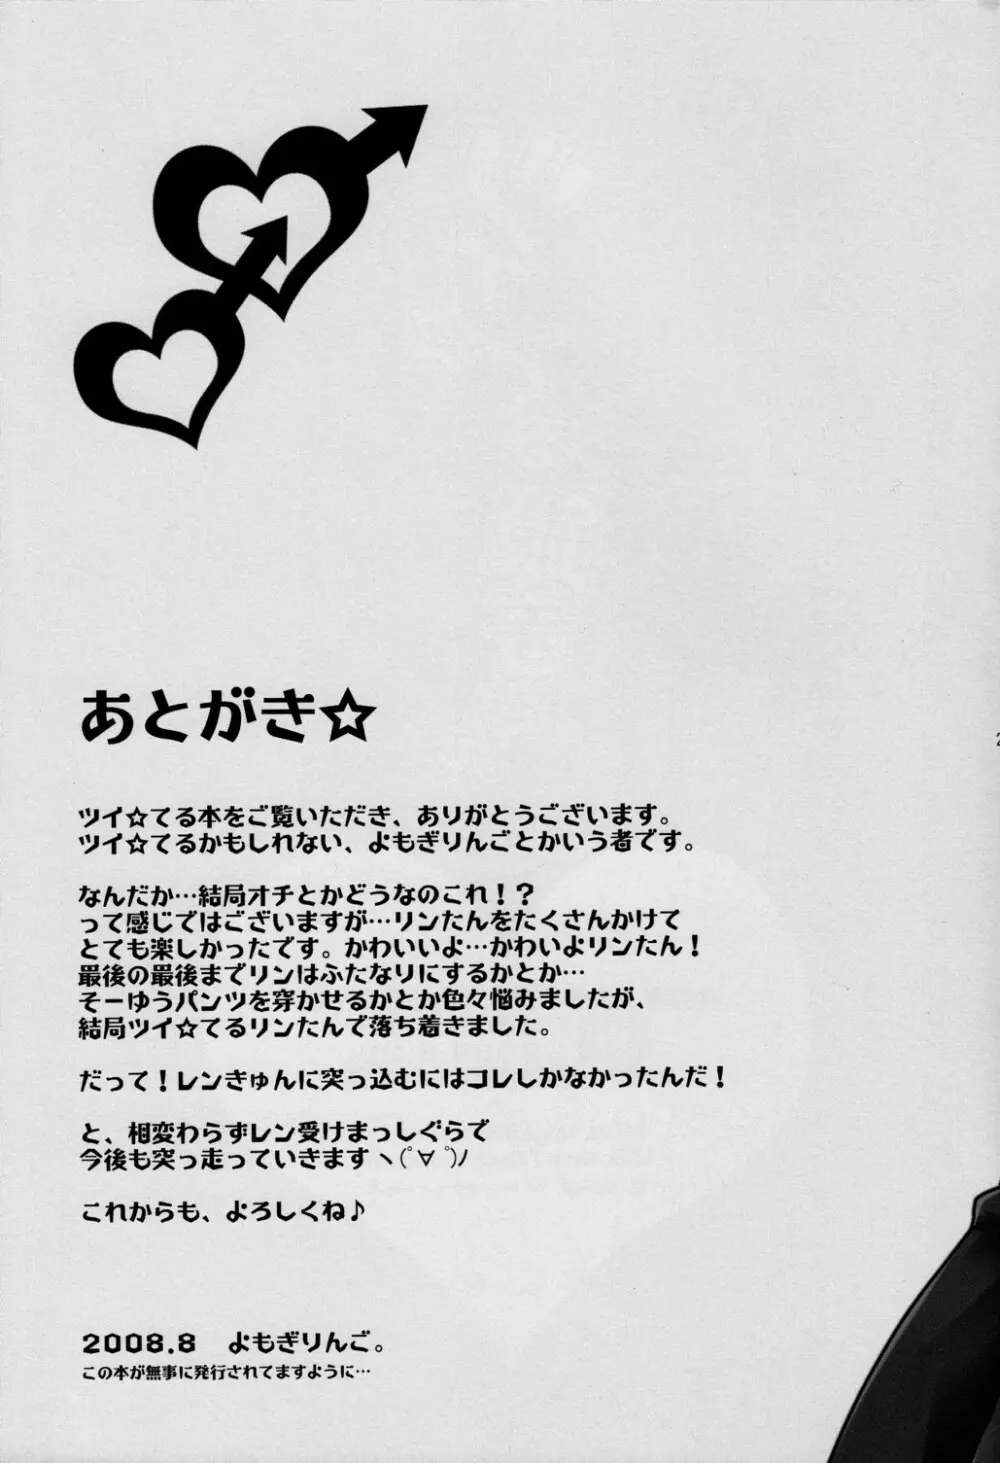 あとがき☆
ツイ☆てる本をご覧いただき、ありがとうございます。
ツイ☆てるかもしれない、よもぎりんごとかいう者です。
なんだか…結局オチとかどうなのこれ！？
って感じではございますが…リンたんをたくさんかけて
とても楽しかったです。かわいいよ…かわいよリンたん！
最後の最後までリンはふたなりにするかとか…
そーゆうパンツを穿かせるかとか色々悩みましたが、
結局ツイ☆てるリンたんで落ち着きました。
だって！レンきゅんに突っ込むにはコレしかなかったんだ！
と、相変わらずレン受けまっしぐらで
今後も突っ走っていきますヽ(ﾟ∀ﾟ)ﾉ
これからも、よろしくね♪
2008.8　よもぎりんご。
この本が無事に発行されてますように…